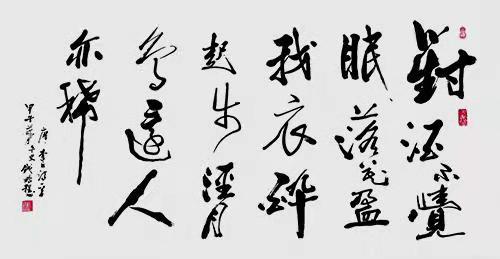 對酒不覺
眠落花盈
我衣醉
起步溪月
鳥還人
亦稀
唐李白詩
甲午